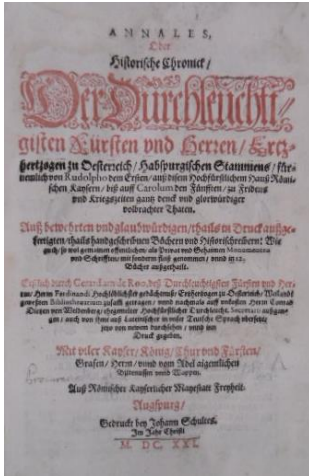 ANNALES,
Oder
Historische Chronick/
Der Durchleuchti/
gisten Fürsten vnd Herren/ Ertz-
hertzogen zu Oesterreich/ Habspurgischen Stammens/ für-
nemlich von Rudolpho dem Ersten/ auß disem Hochfürstlichem Hauß Römi-
schen Kaysern/ biß auff Carolum den Fünfften/ zu Fridens
vnd Kriegszeiten gantz denck vnd glorwürdiger
volbrachter Thaten.
Auß bewehrten vnd glaubwürdigen/ theils in Druck außge-
fertigten/ theils handgeschribnen Büchern vnd Historischreibern: Wie
auch/ so wol gemeinen offentlichen/ als Privat vnd Geheimen
vnd Schrifften/ mit sonderm fleiß genommen/ vnnd in 12.
Bücher außgetheilt.
Erstlich durch Gerardum de Roo, deß Durchleuchtigsten Fürsten vnd Her-
ren/ Herrn Ferdinandi Hochlöblichster gedächtnuß/ Ertzhertzogen zu Oesterreich/ Weiland
gewesten Bibliothecarium zusam getragen/ vnnd nachmals auff
Dietzen von Weidenberg/ ehegemelter Hochfürstlicher Durchleucht. Secretario außgan-
gen/ auch von jhme auß Lateinischer in vnser Teutsche Sprach vbersetzt/
jetzo von newem durchsehen/ vnnd inn
Druck gegeben.
Mit viler Kayser/ König/ Chur vnd Fürsten/
Grafen/ Herrn/ vnnd vom Adel eigentlichen
Bildtnussen vnnd Wappen.
Auß Römischer Kayserlicher Mayestatt Freyheit.
Augspurg/
Gedruckt bey Johann Schultes.
Im Jahr Christi
M. DC. XXI.